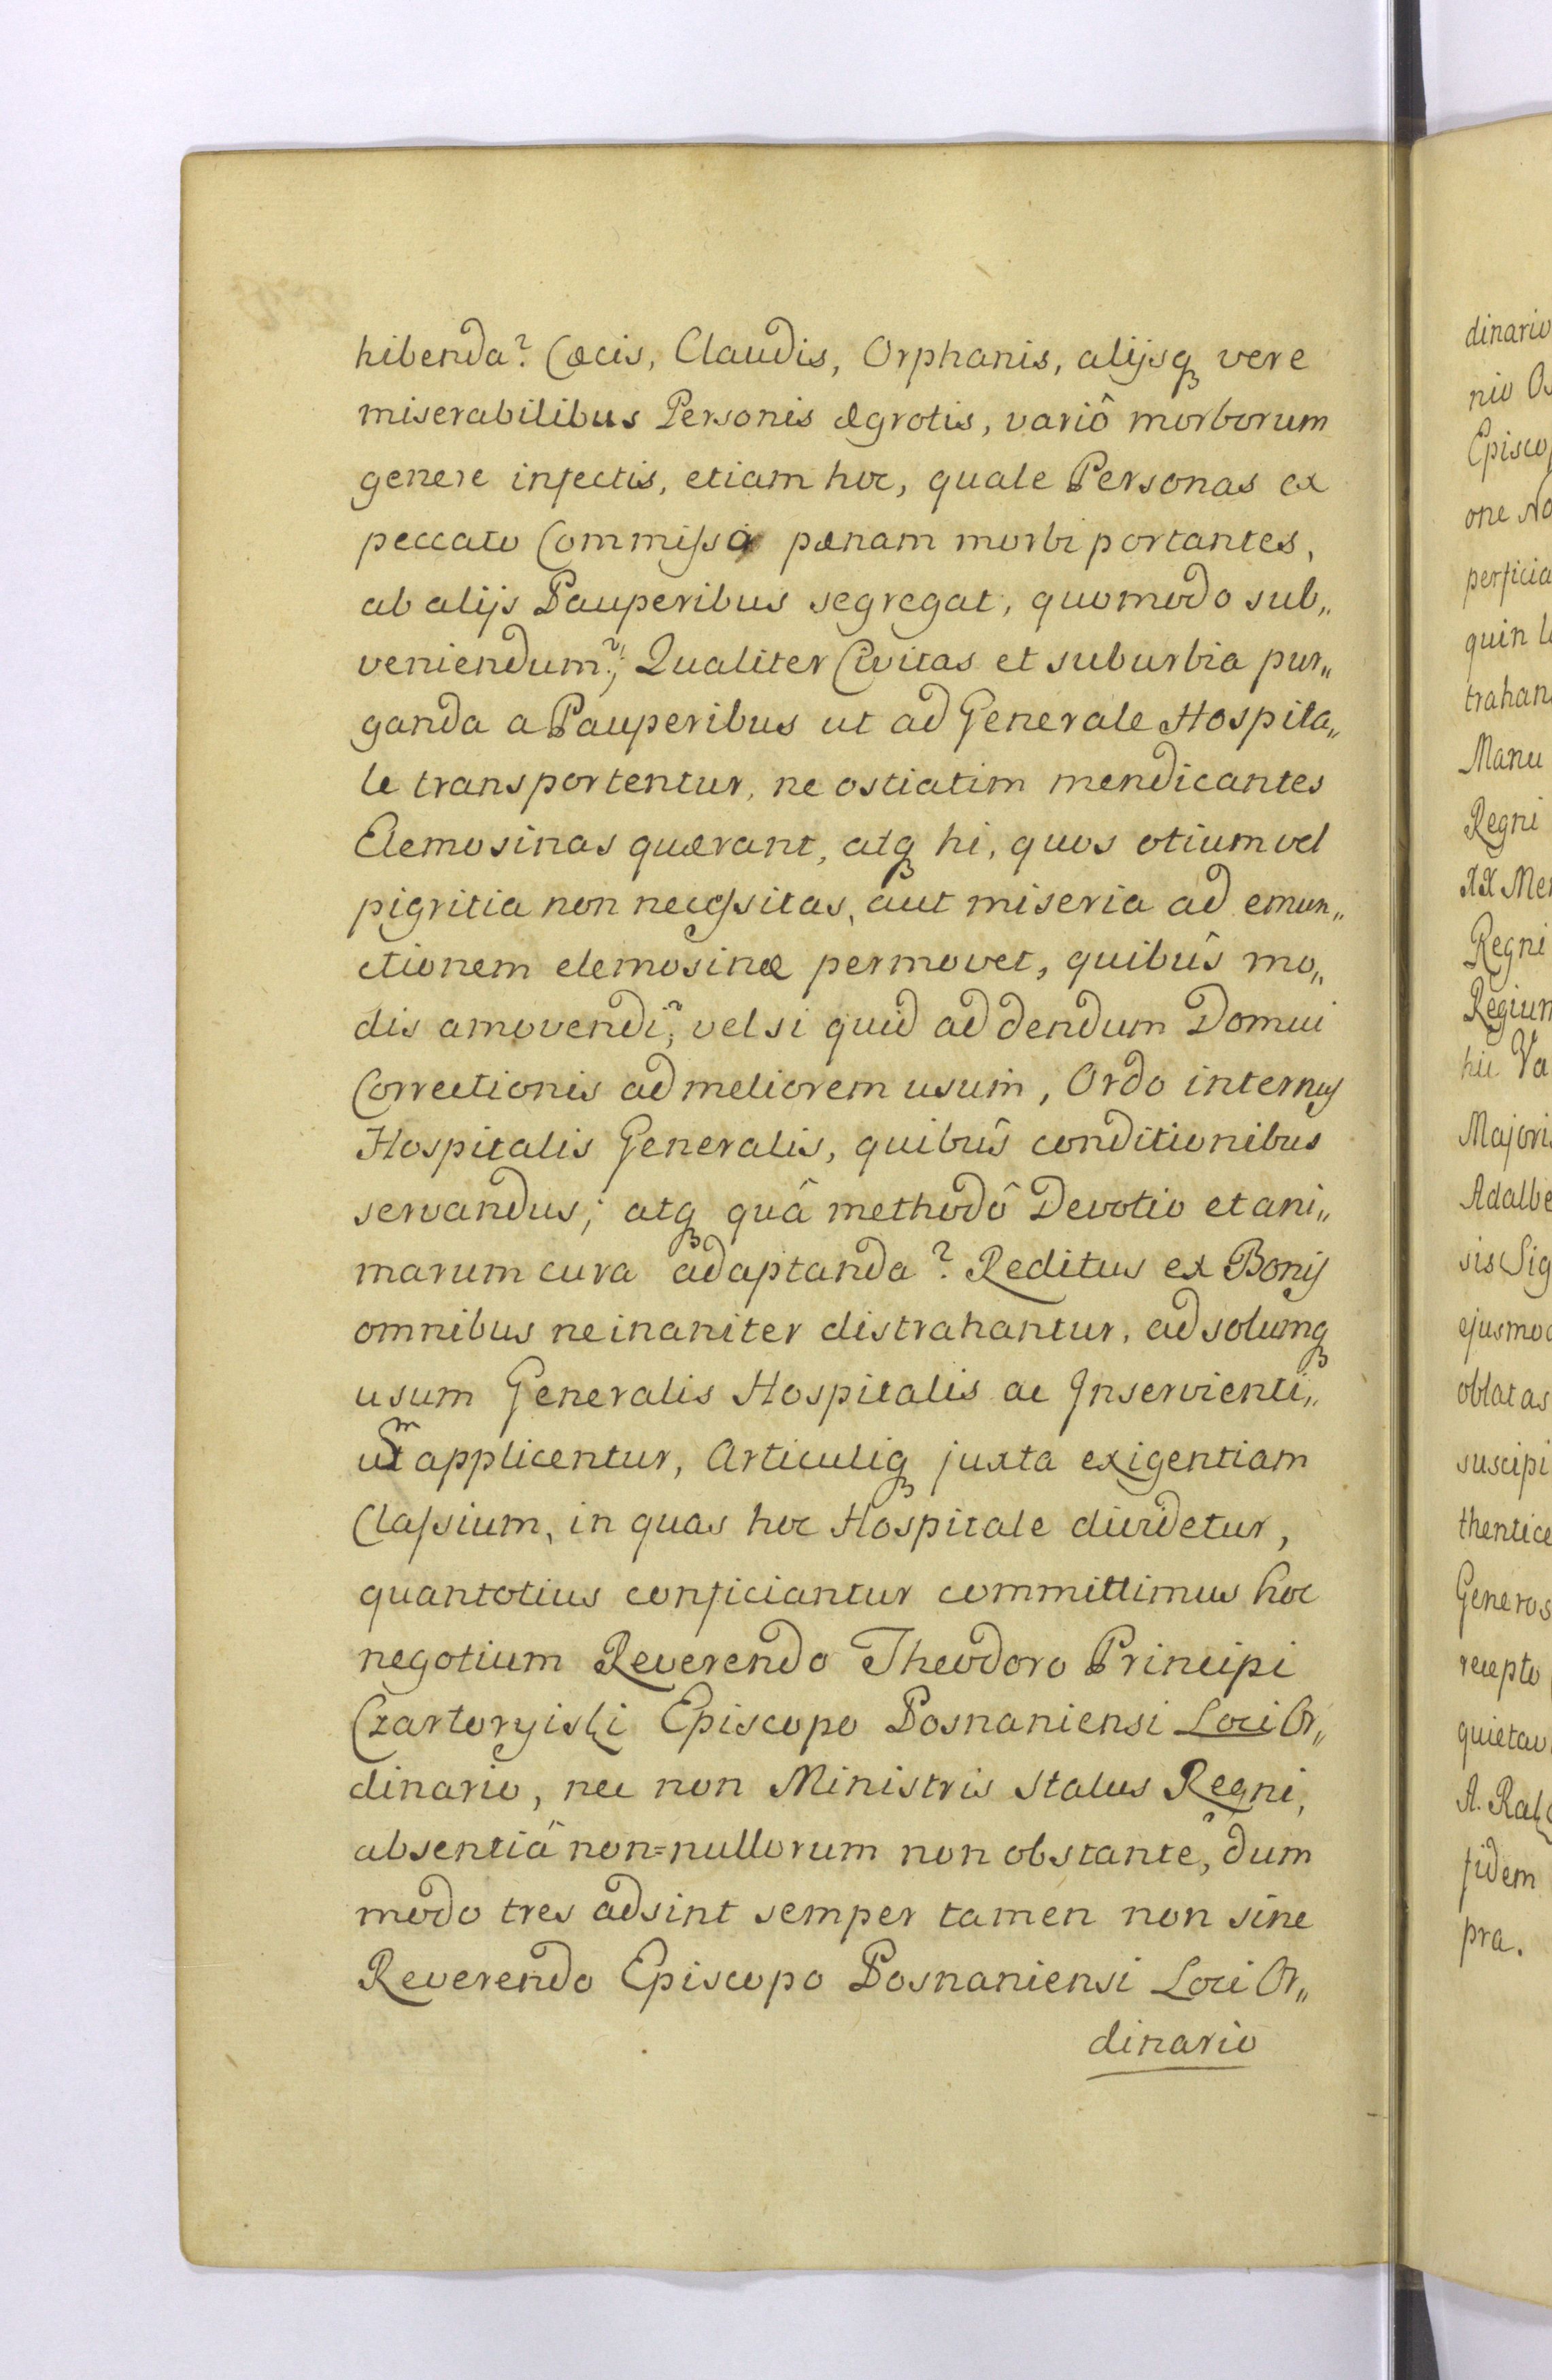 hibenda? Cæcis, Claudis, Orphanis, alijsq; vere
miserabilibus Personis ægrotis, variô morborum
genere infectis, etiam hoc, quale Personas ex
peccato Commisso pænam morbi portantes,
ab alijs Pauperibus segregat, quomodo sub„
veniendum?; Qualiter Civitas et suburbia pur„
ganda a Pauperibus ut ad Generale Hospita„
le transportentur, ne ostiatim mendicantes
Elemosinas quærant, atq; hi, quos otium vel
pigritia non necessitas, aut miseria ad emun„
ctionem elemosinæ permovet, quibus mo„
dis amovendi?; vel si quid addendum Domui
Correctionis ad meliorem usum, Ordo internus
Hospitalis Generalis, quibus conditionibus
servandus; atq; quâ methodô Devotio et ani„
marum cura adaptanda? Reditus ex Bonis
omnibus ne inaniter distrahantur, ad solumq;
usum Generalis Hospitalis ac Inservienti„
um applicentur, Articuliq; juxta exigentiam
Classium, in quas hoc Hospitale dividetur,
quantotius conficiantur committimus hoc
negotium Reverendo Theodoro Principi
Czartoryiski Episcopo Posnaniensi Loci Or„
dinario, nec non Ministris Status Regni,
absentiâ non=nullorum non obstante, dum
modo tres adsint semper tamen non sine
Reverendo Episcopo Posnaniensi Loci Or„
dinario
dinario
nio Os
Episcop
one No
perficia
quin
trahan
Manu
Regni
XX Men
Regni
Regium
hic Va
Majoris
Adalbe
sis Sig
ejusmod
oblatas
suscipi
thentice
Generos
recepto
quietav
A. Ral
fidem
pra.